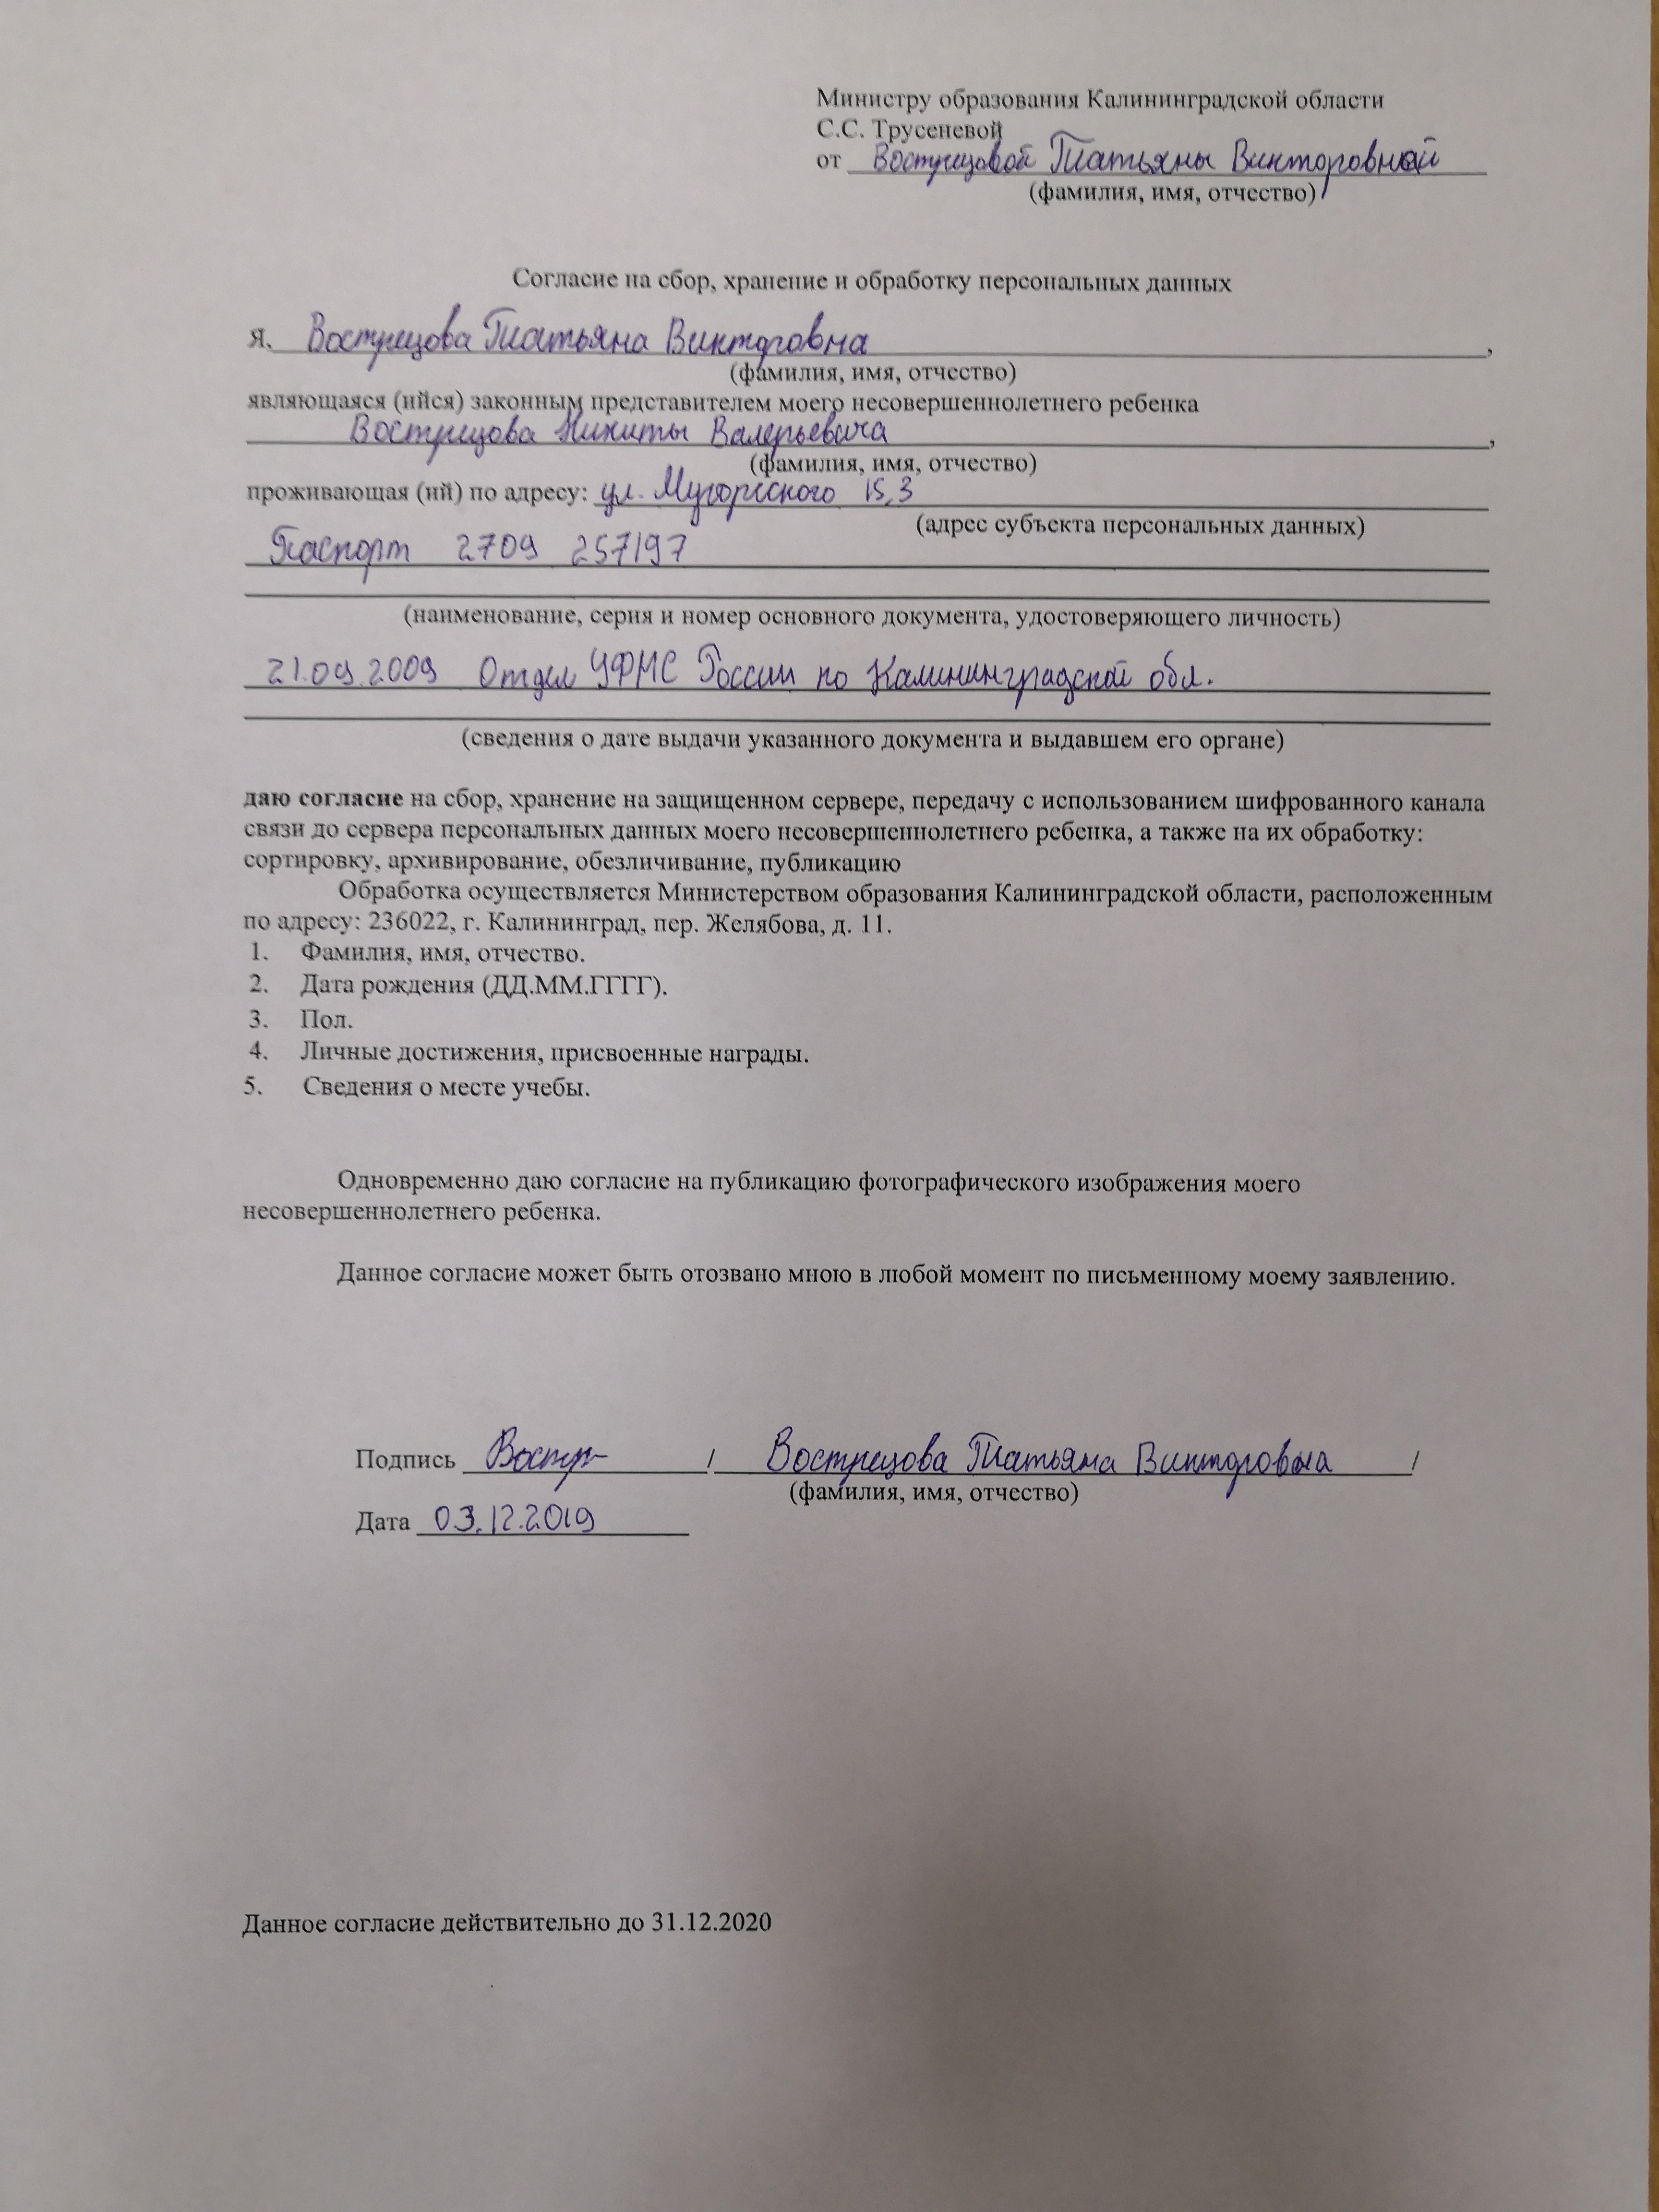 Министру образования Калининградской области
С.С. Трусеневой
от Вострецовой Татьяны Викторовной
(фамилия, имя, отчество)
Согласие на сбор, хранение и обработку персональных данных
Я, Вострецова Татьяна Викторовна,
(фамилия, имя, отчество)
являющаяся (ийся) законным представителем моего несовершеннолетнего ребенка
Вострецова Никиты Валерьевича,
(фамилия, имя, отчество)
проживающая (ий) по адресу: ул. 15, 3
(адрес субъекта персональных данных)
Паспорт 2709 257197
(наименование, серия и номер основного документа, удостоверяющего личность)
21.09.2009 Отдел УФМС России по Калининградской обл.
(сведения о дате выдачи указанного документа и выдавшем его органе)
даю согласие на сбор, хранение на защищенном сервере, передачу с использованием шифрованного канала
связи до сервера персональных данных моего несовершеннолетнего ребенка, а также на их обработку:
сортировку, архивирование, обезличивание, публикацию
Обработка осуществляется Министерством образования Калининградской области, расположенным
по адресу: 236022, г. Калининград, пер. Желябова, д. 11.
1. Фамилия, имя, отчество.
2. Дата рождения (ДД.ММ.ГГГГ).
3. Пол.
4. Личные достижения, присвоенные награды.
5. Сведения о месте учебы.
Одновременно даю согласие на публикацию фотографического изображения моего
несовершеннолетнего ребенка.
Данное согласие может быть отозвано мною в любой момент по письменному моему заявлению.
Подпись Востр / Вострецова Татьяна Викторовна /
(фамилия, имя, отчество)
Дата 03.12.2019
Данное согласие действительно до 31.12.2020